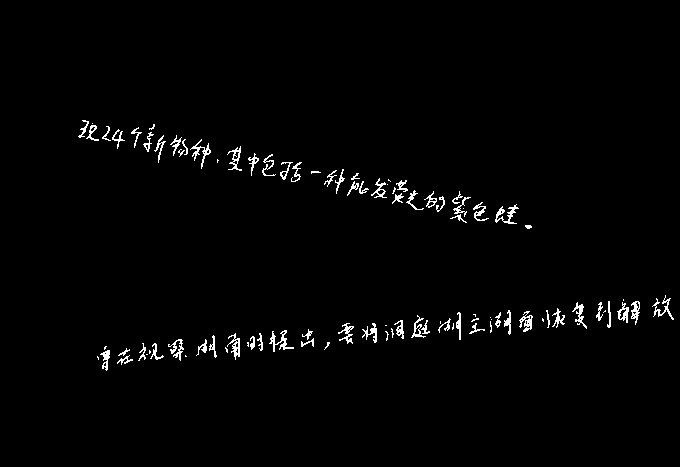 现24个新物种，其中包括一种能发荧光的紫色蛙。
曾在视察湖南时提出，要将洞庭湖主湖面恢复到解放